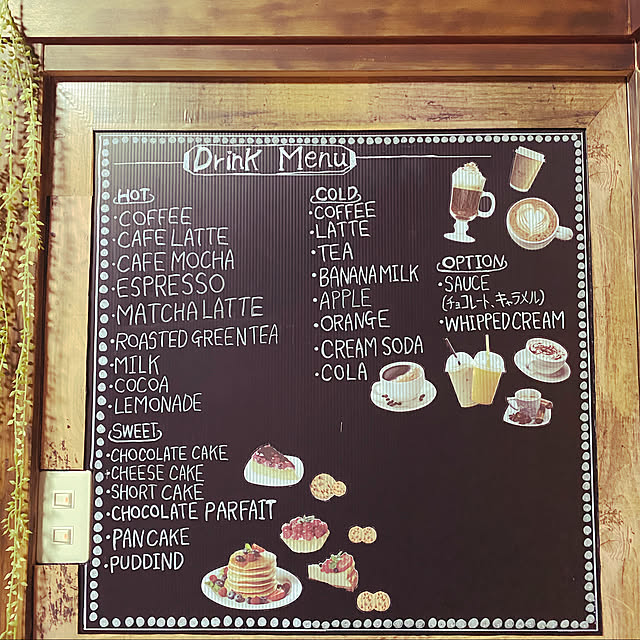 Drink Menu
HOT
·COFFEE
·CAFE LATTE
·CAFE MOCHA
·ESPRESSO
·MATCHA LATTE
·ROASTED GREEN TEA
·MILK
·COCOA
·LEMONADE
SWEET
·CHOCOLATE CAKE
·CHEESE CAKE
·SHORT CAKE
·CHOCOLATE PARFAIT
·PANCAKE
·PUDDIND
COLD
·COFFEE
·LATTE
·TEA
·BANANA MILK
·APPLE
·ORANGE
·CREAM SODA
·COLA
OPTION
·SAUCE
(チョコレート、キャラメル)
·WHIPPED CREAM